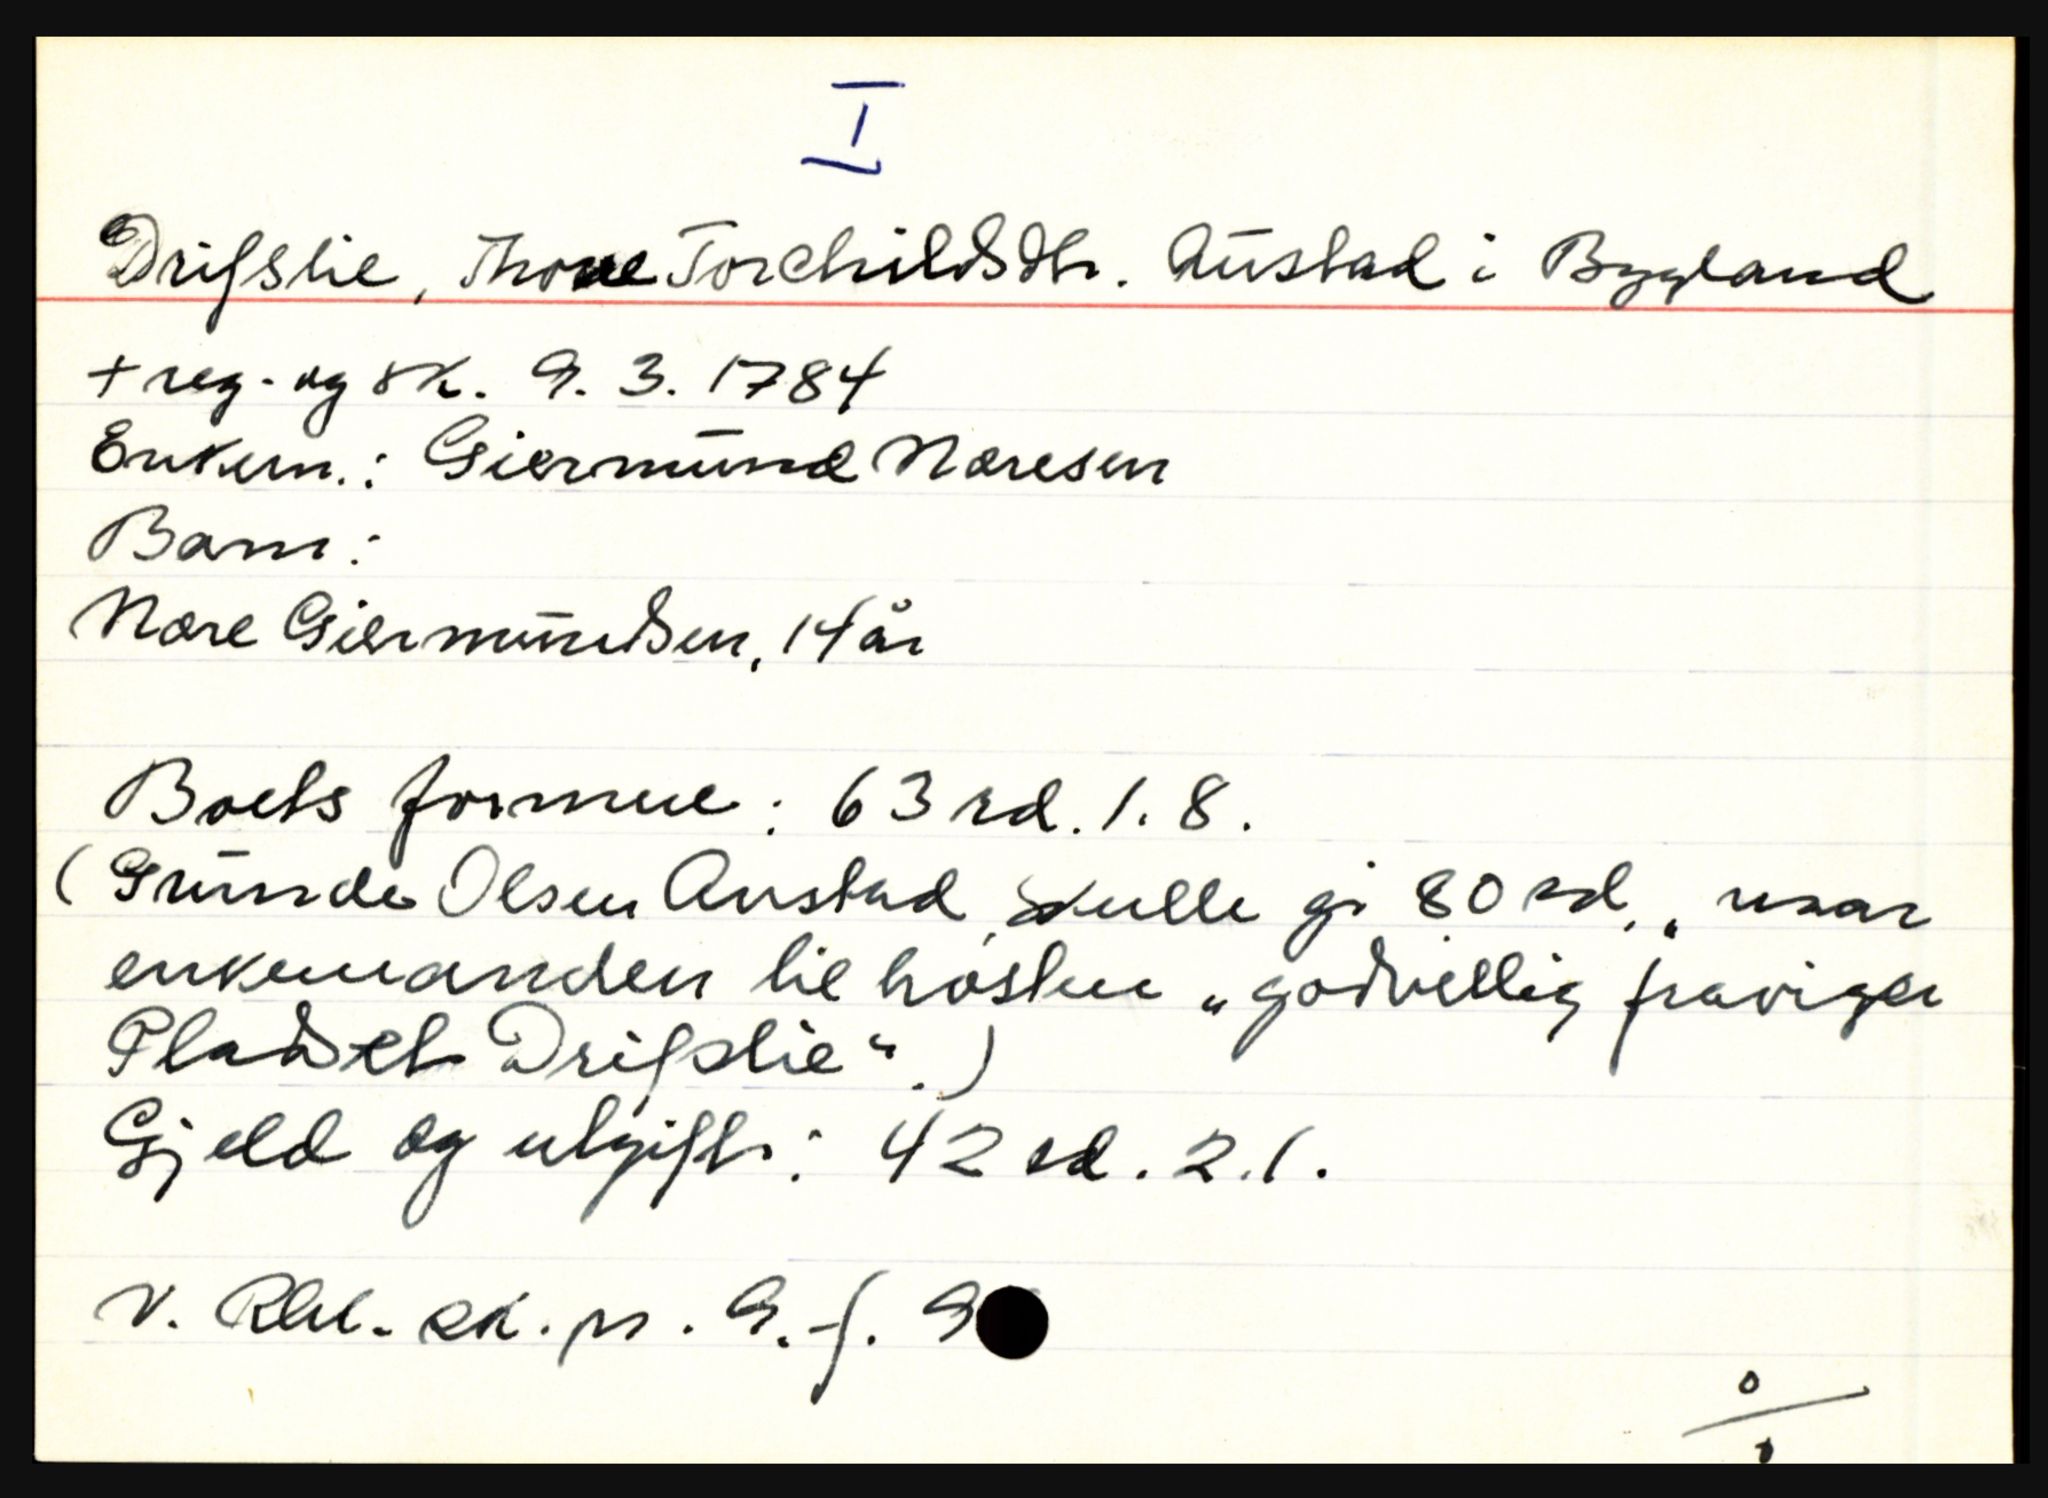 I
Drifslie, Thone Torchildsdtr. Austad i Bygland
+ reg. og sk. 9. 3. 1784
Enkem.: Giermund Noresen
Barn:
Nore Giermundsen, 14 år
Boets formue: 63 rd. 1. 8.
(Gunde Olsen Austad, skulle gi 80 rd., naar
enkemanden til høsten „godvillig fraviger
Pladset Drifslie“.)
Gjeld og utgifter: 42 rd. 2. 1.
V. Rbl. sk. pr. 9. f. 9